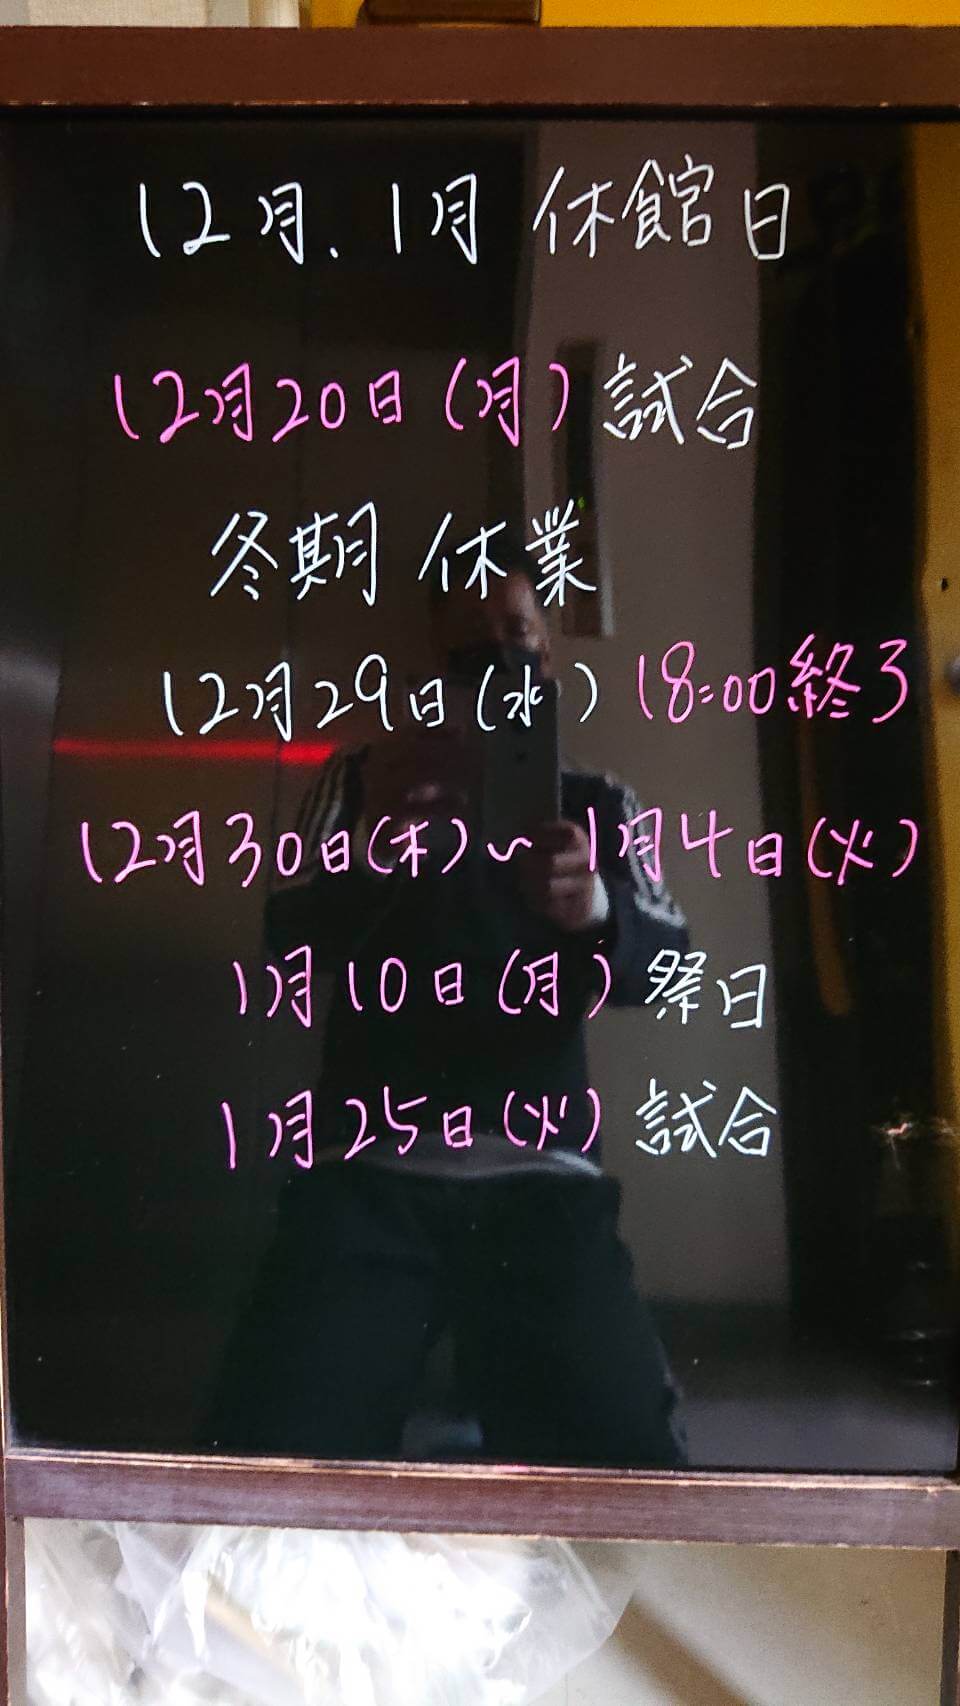 12月.1月 休館日
12月20日(月)試合
冬期 休業
12月29日(水)18:00終了
12月30日(木)～1月4日(火)
1月10日(月)祭日
1月25日(火)試合